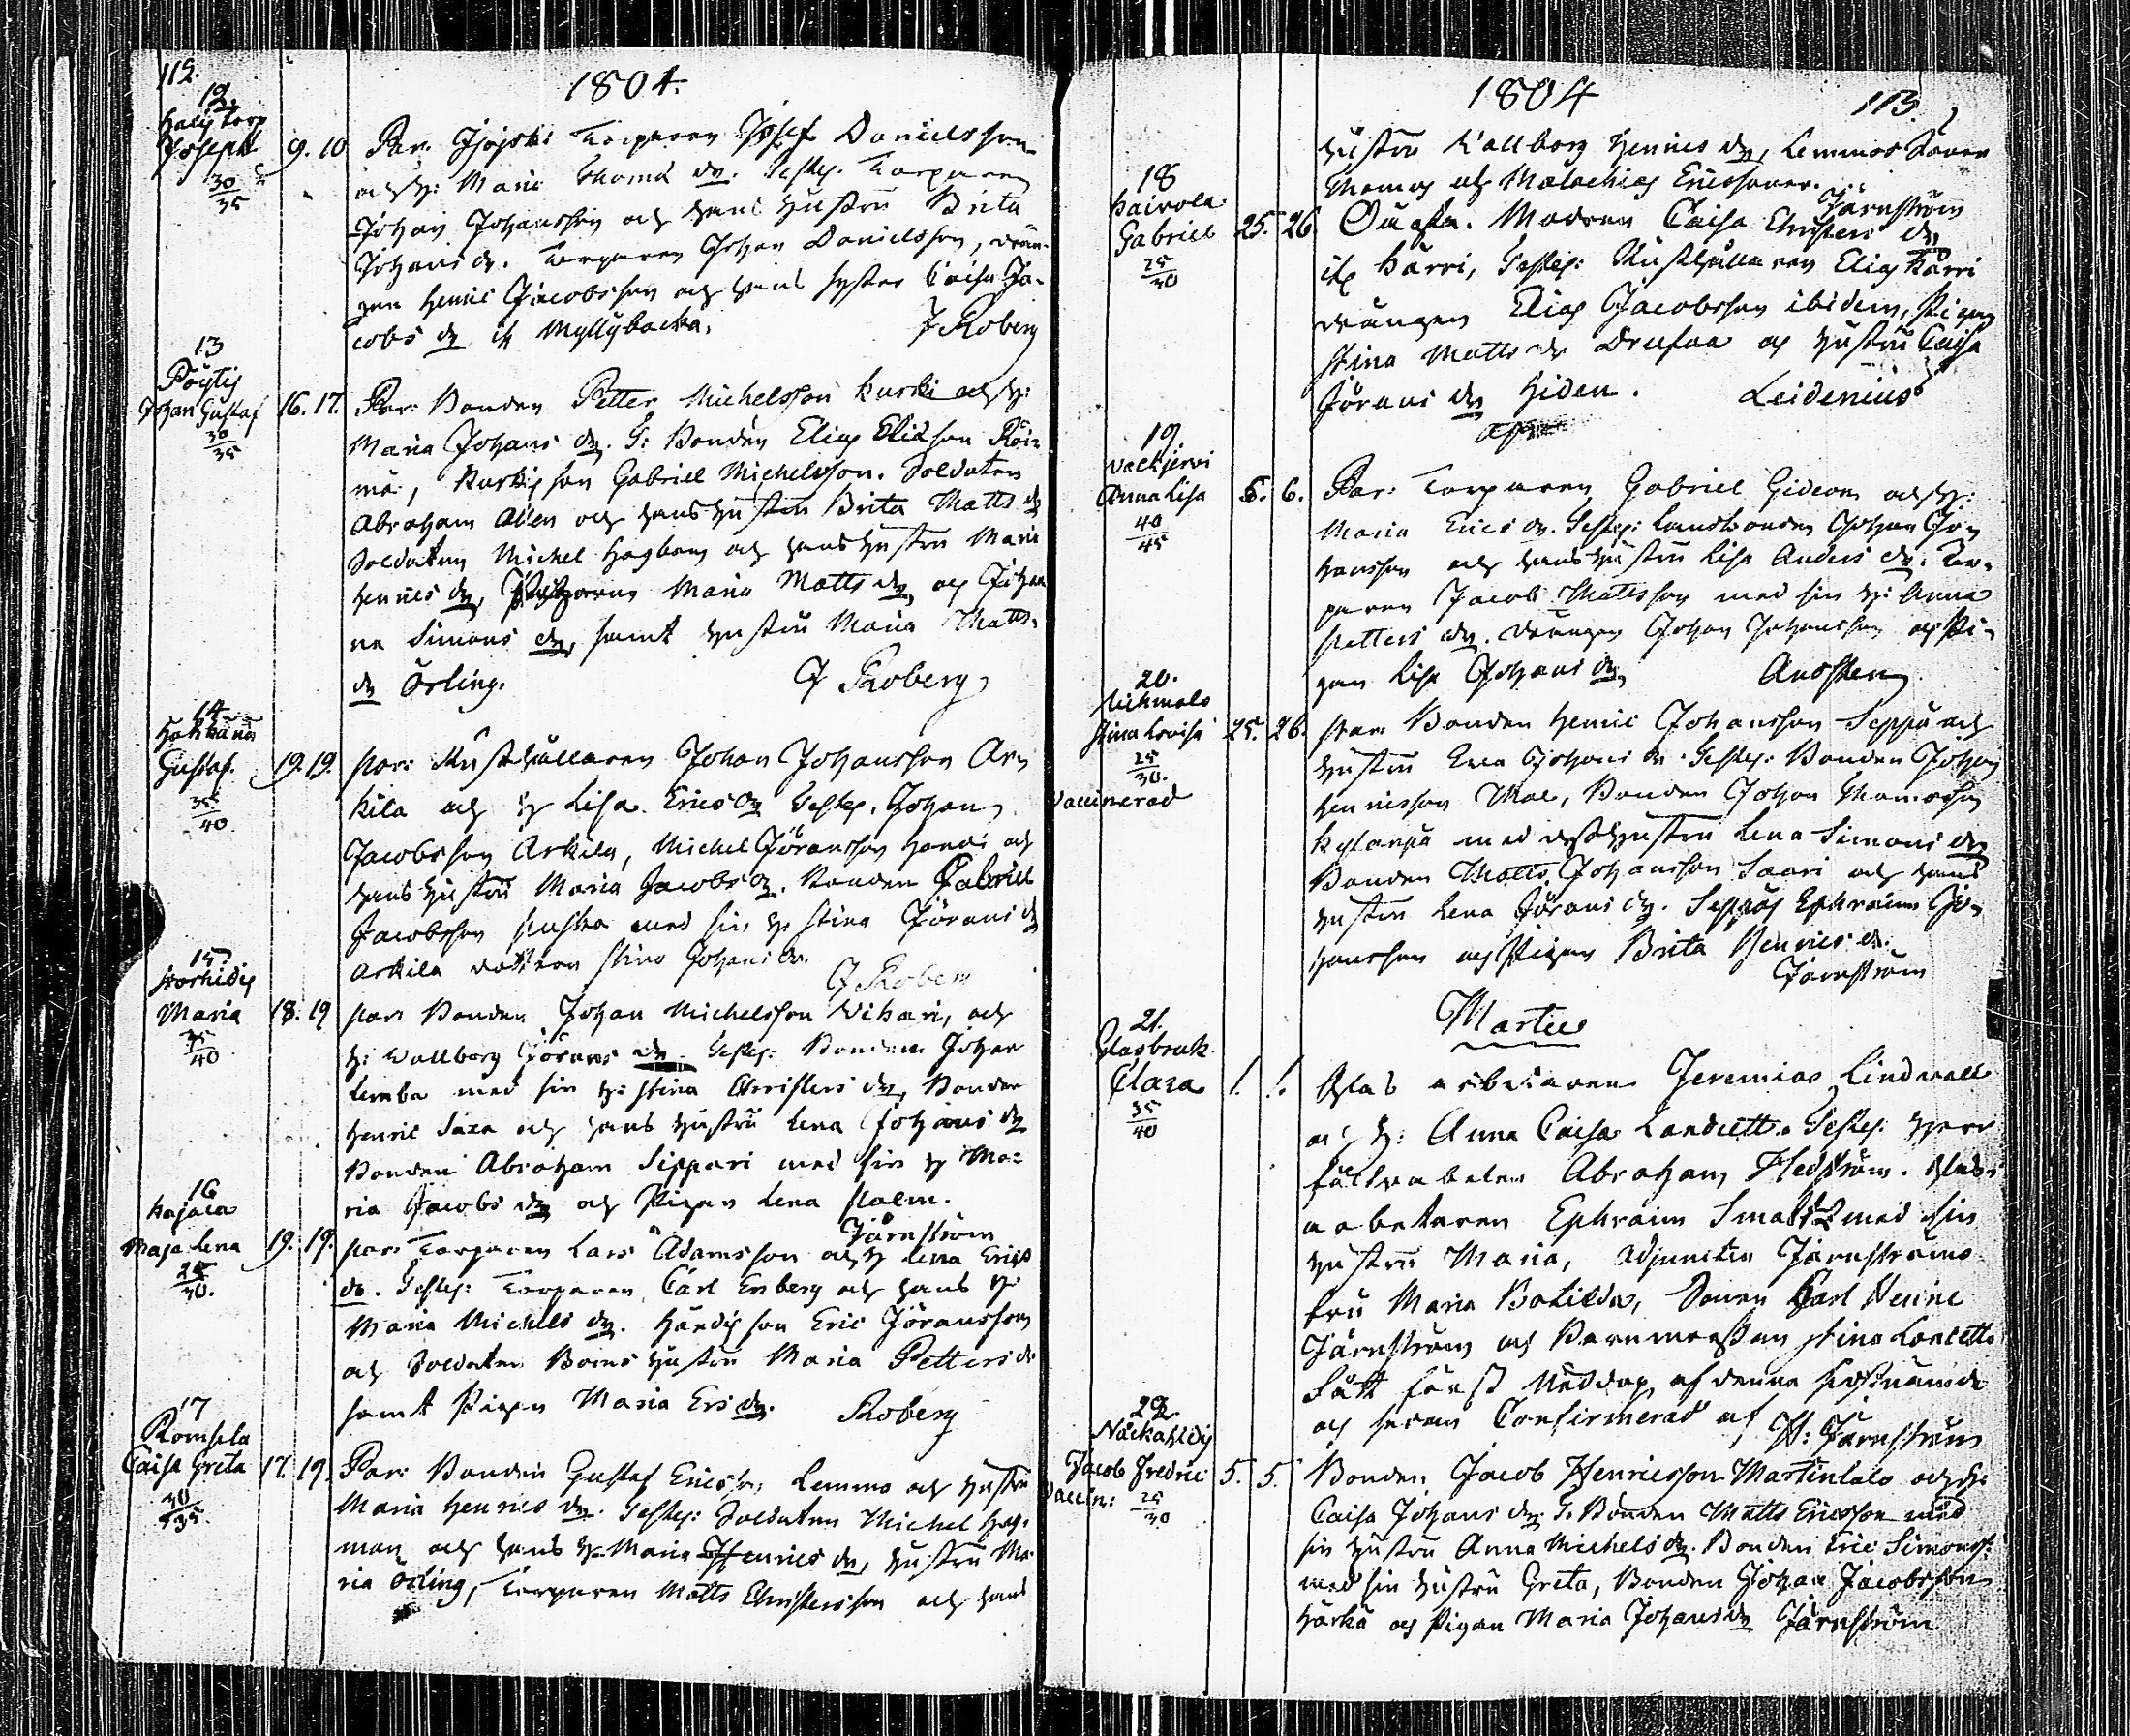 112.
1804.
12.
Joseph 9. 10
30
35
Par. Torparen Josef Danielsson
och h: Maria Thomæ dr. Testes. Torparen
Johan Johansson och hans hustru Brita
Johans dr. Torparen Johan Danielsson, drän-
gen Henric Jacobsson och hans syster Caisa Ja-
cobs dr Myllybacka. J Roberg
13
Pöytis
Johan Gustaf 16. 17.
30
35
Par: Bonden Petter Michelsson Kurki och h:
Maria Johans dr. T: Bonden Elias Eliæson
Gabriel Michelsson. Soldaten
Abraham Allen och hans hustru Brita Matts dr
Soldaten Michel Hagberg och hans hustru Maria
Henrics dr, Maria Matts dr och Johan
na Simons dr, samt hustru Maria Matts
dr Örling. J Roberg
14
Gustaf. 19. 19.
35
40
par: Rusthållaren Johan Johansson Ar-
kila och h Lisa Erics dr Testes. Johan
Jacobsson Arkila, Michel Jöransson och
hans hustru Maria Jacobs dr. Bonden Gabriel
Jacobsson med sin h Stina Jörans dr
Arkila dottren Stina Johans dr. J Roberg
15
Maria 18. 19
35
40
par: Bonden Johan Michelsson Wihari, och
h: Wallborg Jörans dr. Testes: Bonden Johan
Lemba med sin h: Stina Christers dr, Bonden
Henric Saxa och hans hustru Lena Johans dr
Bonden Abraham Sippari med sin h Ma-
ria Jacobs dr och Pigan Lena Palm.
Järnström
16
Kajala
Maja Lena 19. 19.
25
30.
par: Torparen Lars Adamsson och h Lena Erics
dr. Testes: Torparen Carl Enberg och hans h:
Maria Michels dr. Händis son Eric Jöransson
och Soldaten Boms hustru Maria Petters dr
samt Pigan Maria Ers dr. Roberg
17
Caisa Greta 17. 19.
30
35.
Par: Bonden Gustaf Ericsson Lemmo och hustru
Maria Henrics dr. Testes: Soldaten Michel Hag-
man och hans h Maria Henrics dr, hustru Ma
ria Örling, Torparen Matts Christersson och hans
1804
113.
hustru Wallborg Henrics dr, Lemmos Söner
Thomas och Malachias Ericssöner.
Järnström
18
Gabriel 25. 26.
25
30
Oäckta. Modren Caisa Christers dr
Kärri, Testes: Rusthållaren Elias Kärri
drängen Elias Jacobsson ibidem, Pigan
Stina Matts dr och hustru Caisa
Jörans dr Hiden. Leidenius
19.
Anna Lisa 5. 6.
40
45
Par: Torparen Gabriel Gideons och h:
Maria Erics dr. Testes: Landbonden Johan Jo-
hansson och hans hustru Lisa Anders dr. Tor-
paren Jacob Mattsson med sin h: Anna
Petters dr. Drängen Johan Johansson och Pi-
gan Lisa Johans dr.
20.
Stina Lovisa 25. 26.
25
30.
Vaccinerad
par: Bonden Henric Johansson Seppä och
hustru Eva Johans dr. Testes: Bonden Johan
Henricsson Bonden Johan Thomasson
med dess hustru Lena Simons dr
Bonden Matts Johansson Saari och hans
hustru Lena Jörans dr. Seppäs Ephraim Jo-
hansson och Pigan Brita Henrics dr.
Järnström
Martii
21.
Glasbruk
Clara 1. 1.
35
40
Glas arbetaren Jeremias Lindwall
och h: Anna Caisa Landett. Testes: Herr
Fältwäbelen Abraham Hedström. Glas-
arbetaren Ephraim med sin
hustru Maria, Adjuncten Järnströms
fru Maria Botilda, Sonen Carl Henric
Järnström och Barnmorskan Stina
Fått först Nöddop af denna sistnämde
och sedan Confirmerad af H: Järnström
22
Jacob Fredric 5. 5.
Vaccin: 25
30
Bonden Jacob Henricsson Martinlalo och h:
Caisa Johans dr T. Bonden Matts Ericsson med
sin hustru Anna Michels dr. Bonden Eric Simonss:
med sin hustru Greta, Bonden Johan Jacobsson
Härkä och Pigan Maria Johans dr Järnström